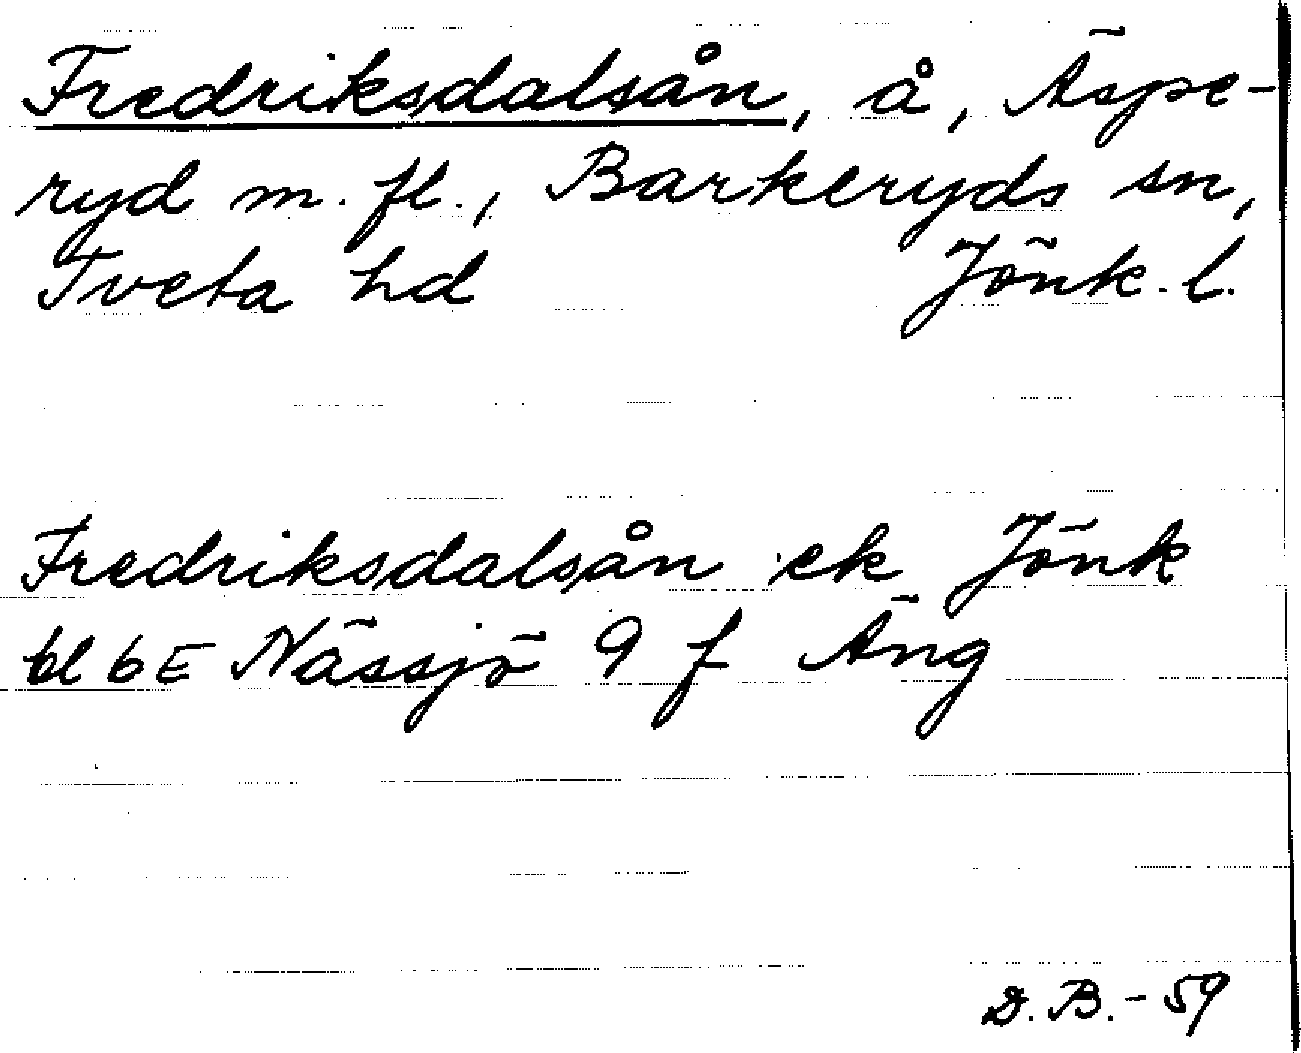 Fredriksdalsån, å, Äspe-
ryd m. fl., Barkeryds sn,
Tveta hd Jönk. l.
Fredriksdalsån ek Jönk
bl 6E Nässjö 9 f Äng
D. B. - 59